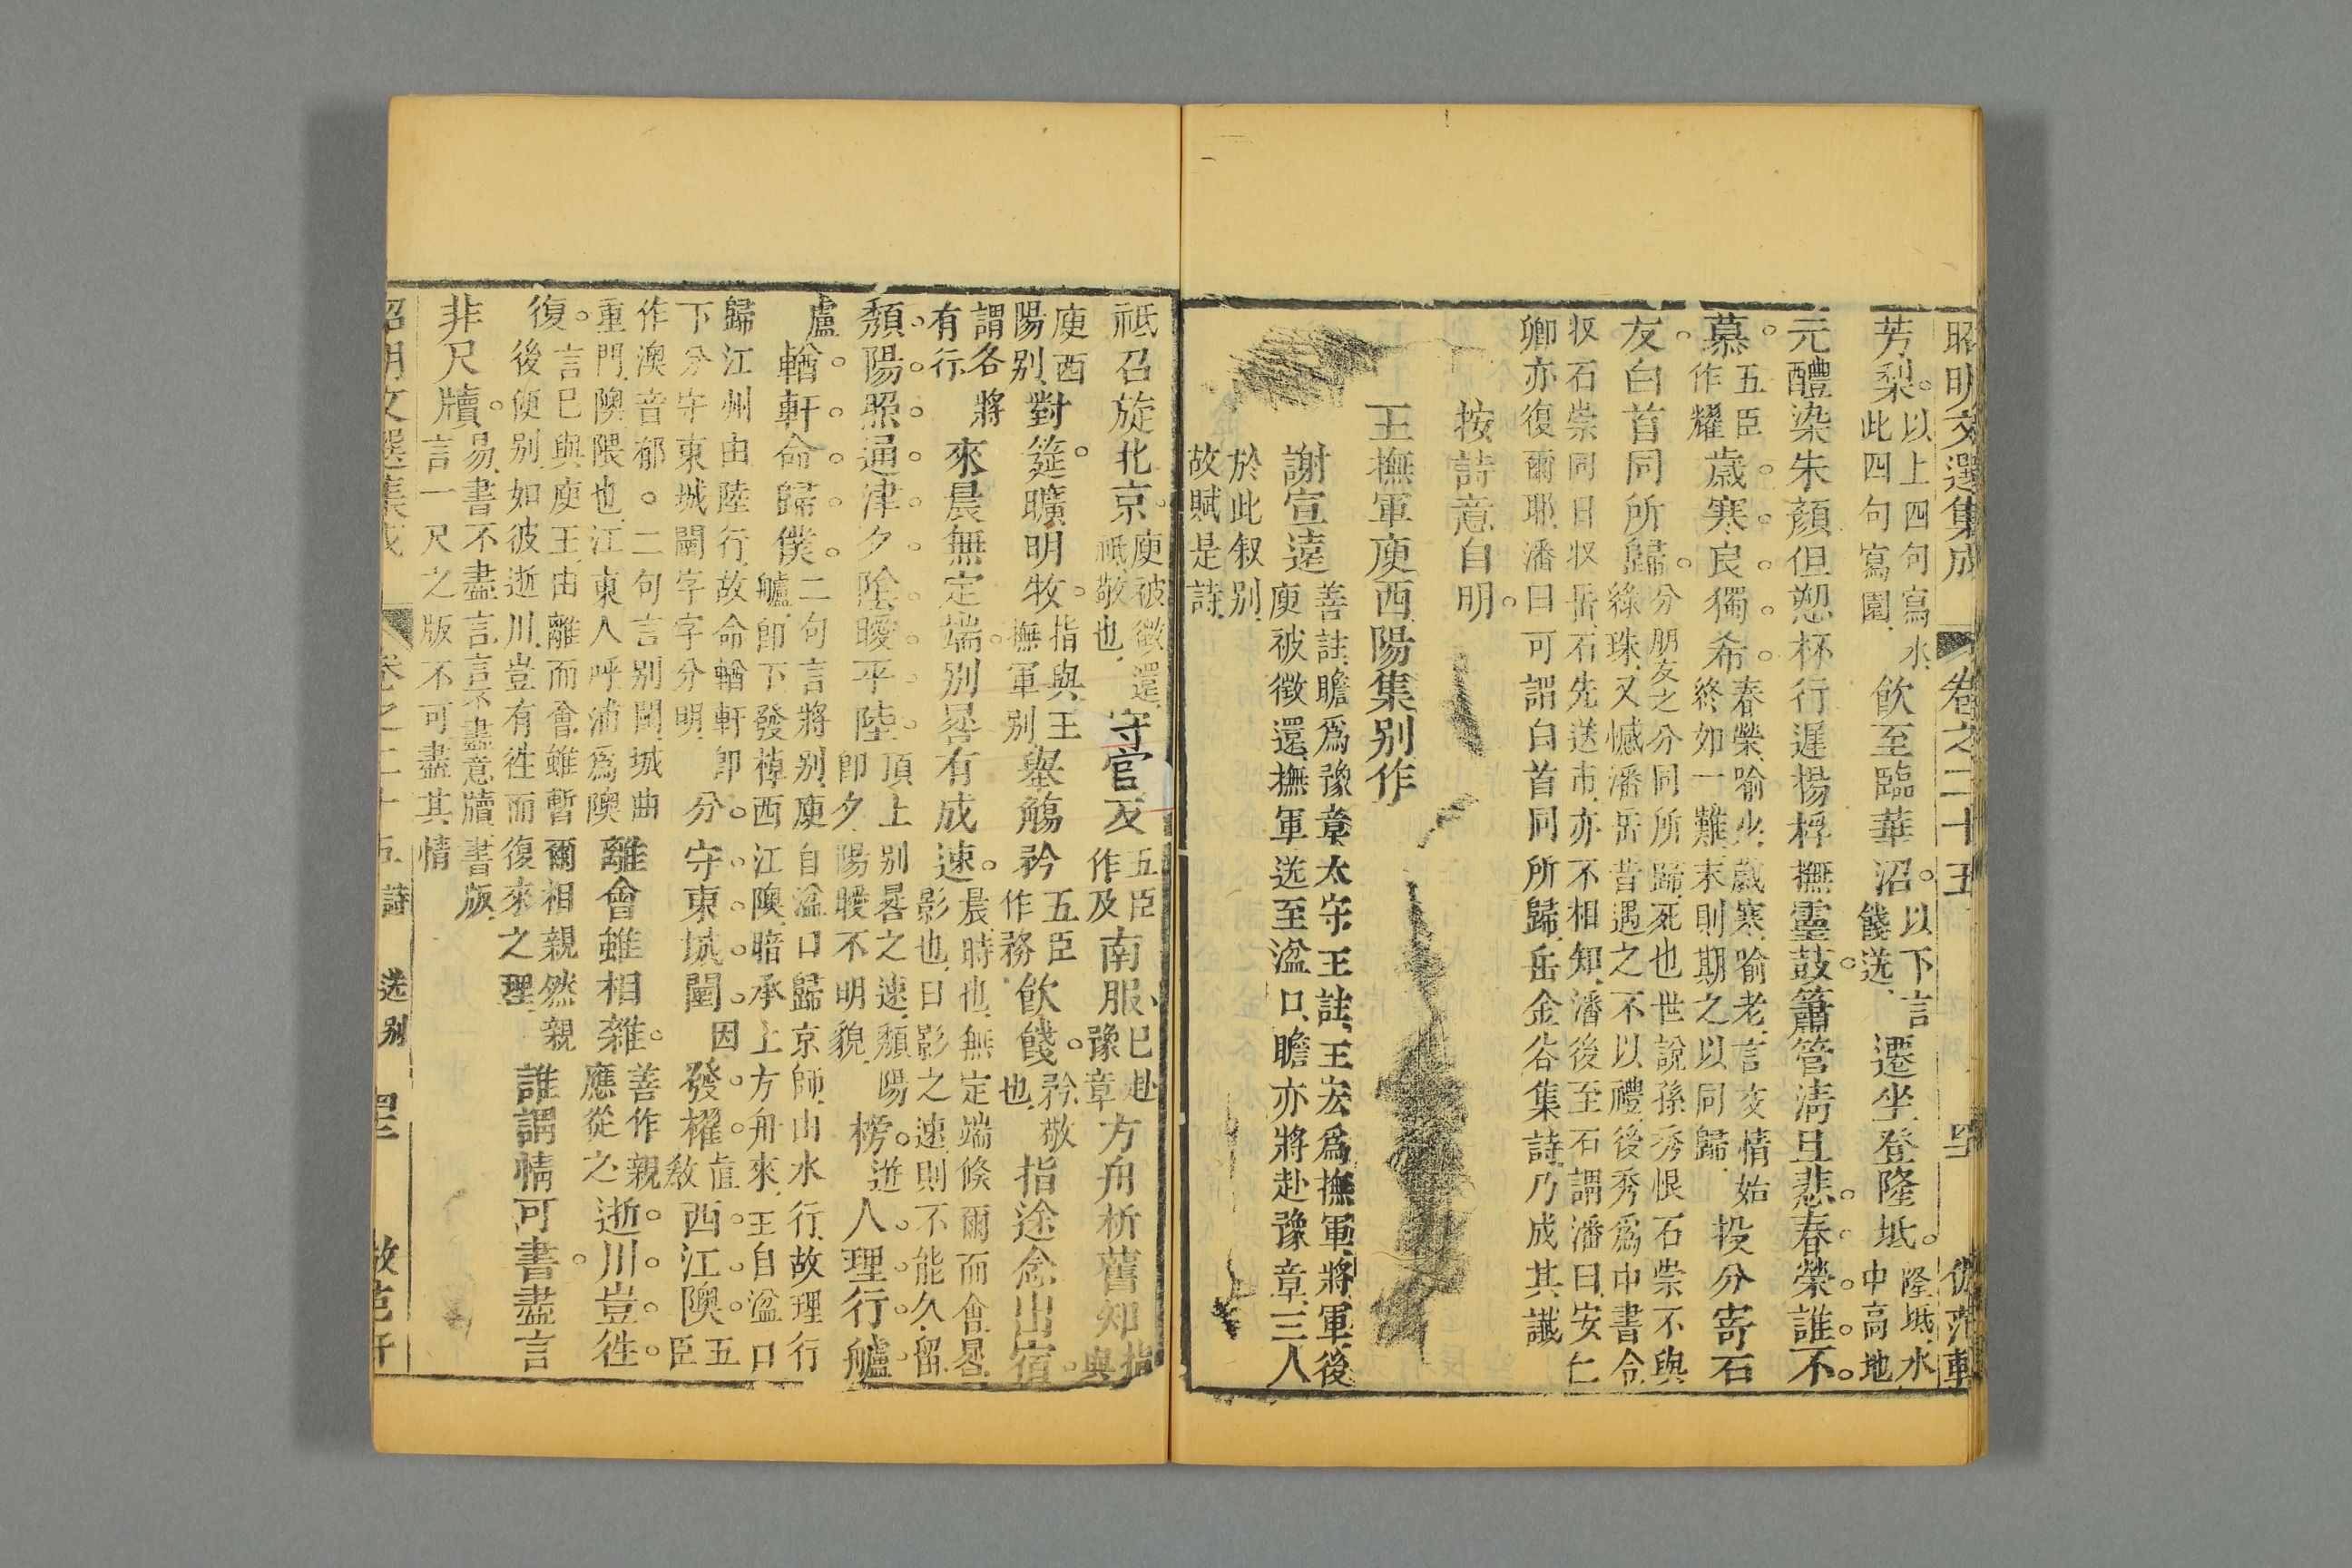 昭明文選集成 卷之二十五
芳梨。以上四句寫水、此四句寫園、飲至臨華沼。以下言餞送、遷坐登隆坻。隆坻、水中高地
元醴染朱顏但愬杯行遲揚桴撫靈鼓。簫管清且悲。春榮誰不
慕。五臣作耀歲寒良獨希。春榮、喻少、歲寒、喻老、言交情始終如一難、末則期之以同歸、投分寄石
友。白首同所歸。分朋友之分同所歸、死也世說孫秀恨石崇不與綠珠、又憾潘岳昔遇之不以禮、後秀爲中書令、
収石崇同日収岳、石先送市、亦不相知、潘後至石謂潘曰、安仁
卿亦復爾耶、潘曰可謂白首同所歸、岳金谷集詩、乃成其讖
按詩意自明。
王撫軍庾西陽集别作
謝宣遠 善註、瞻爲豫章太守、王註、王宏爲撫軍將軍、後庾被徵還、撫軍送至湓口、瞻亦將赴豫章、三人
於此叙别、故賦是詩、
祗召旋北京。庾被徵還、祗敬也、守官反五臣作及南服、已赴豫章方舟析舊知指與
庾西陽别、對筵。曠明牧。指與王撫軍别、舉觴矜五臣作務飲餞。矜、敬也、指途念出宿。
謂各將有行、來晨無定端。别晷有成速。晨、時也、無定端倏爾而會、晷、影也、日影之速、則不能久留、
頹陽照通津夕陰曖平陸。頂上别晷之速、頹陽即夕陽曖不明貌、榜。迸人理行艫。
盧。輶軒命歸僕。二句言將别、庾自湓口歸京師、由水行、故理行艫、即下發棹西江隩、暗承上方舟來、王自湓口
歸江州由陸行、故命輶軒即下分守東城闉字字分明、分。守東城闉。因發櫂。直敎西江隩。五臣
作澳音郁。二句言别閶、城曲重門、隩、隈也、江東人呼浦爲隩離會雖相雜。善作親應從之、逝川豈往
復。言巳與庾王、由離而會、雖暫爾相親然親後便别、如彼逝川、豈有徃而復來之理、誰謂情可書。盡言
非尺牘。易、書不盡言、言不盡意牘、書版、言一尺之版不可盡其情
昭明文選集成 卷之二十五 詩 送别